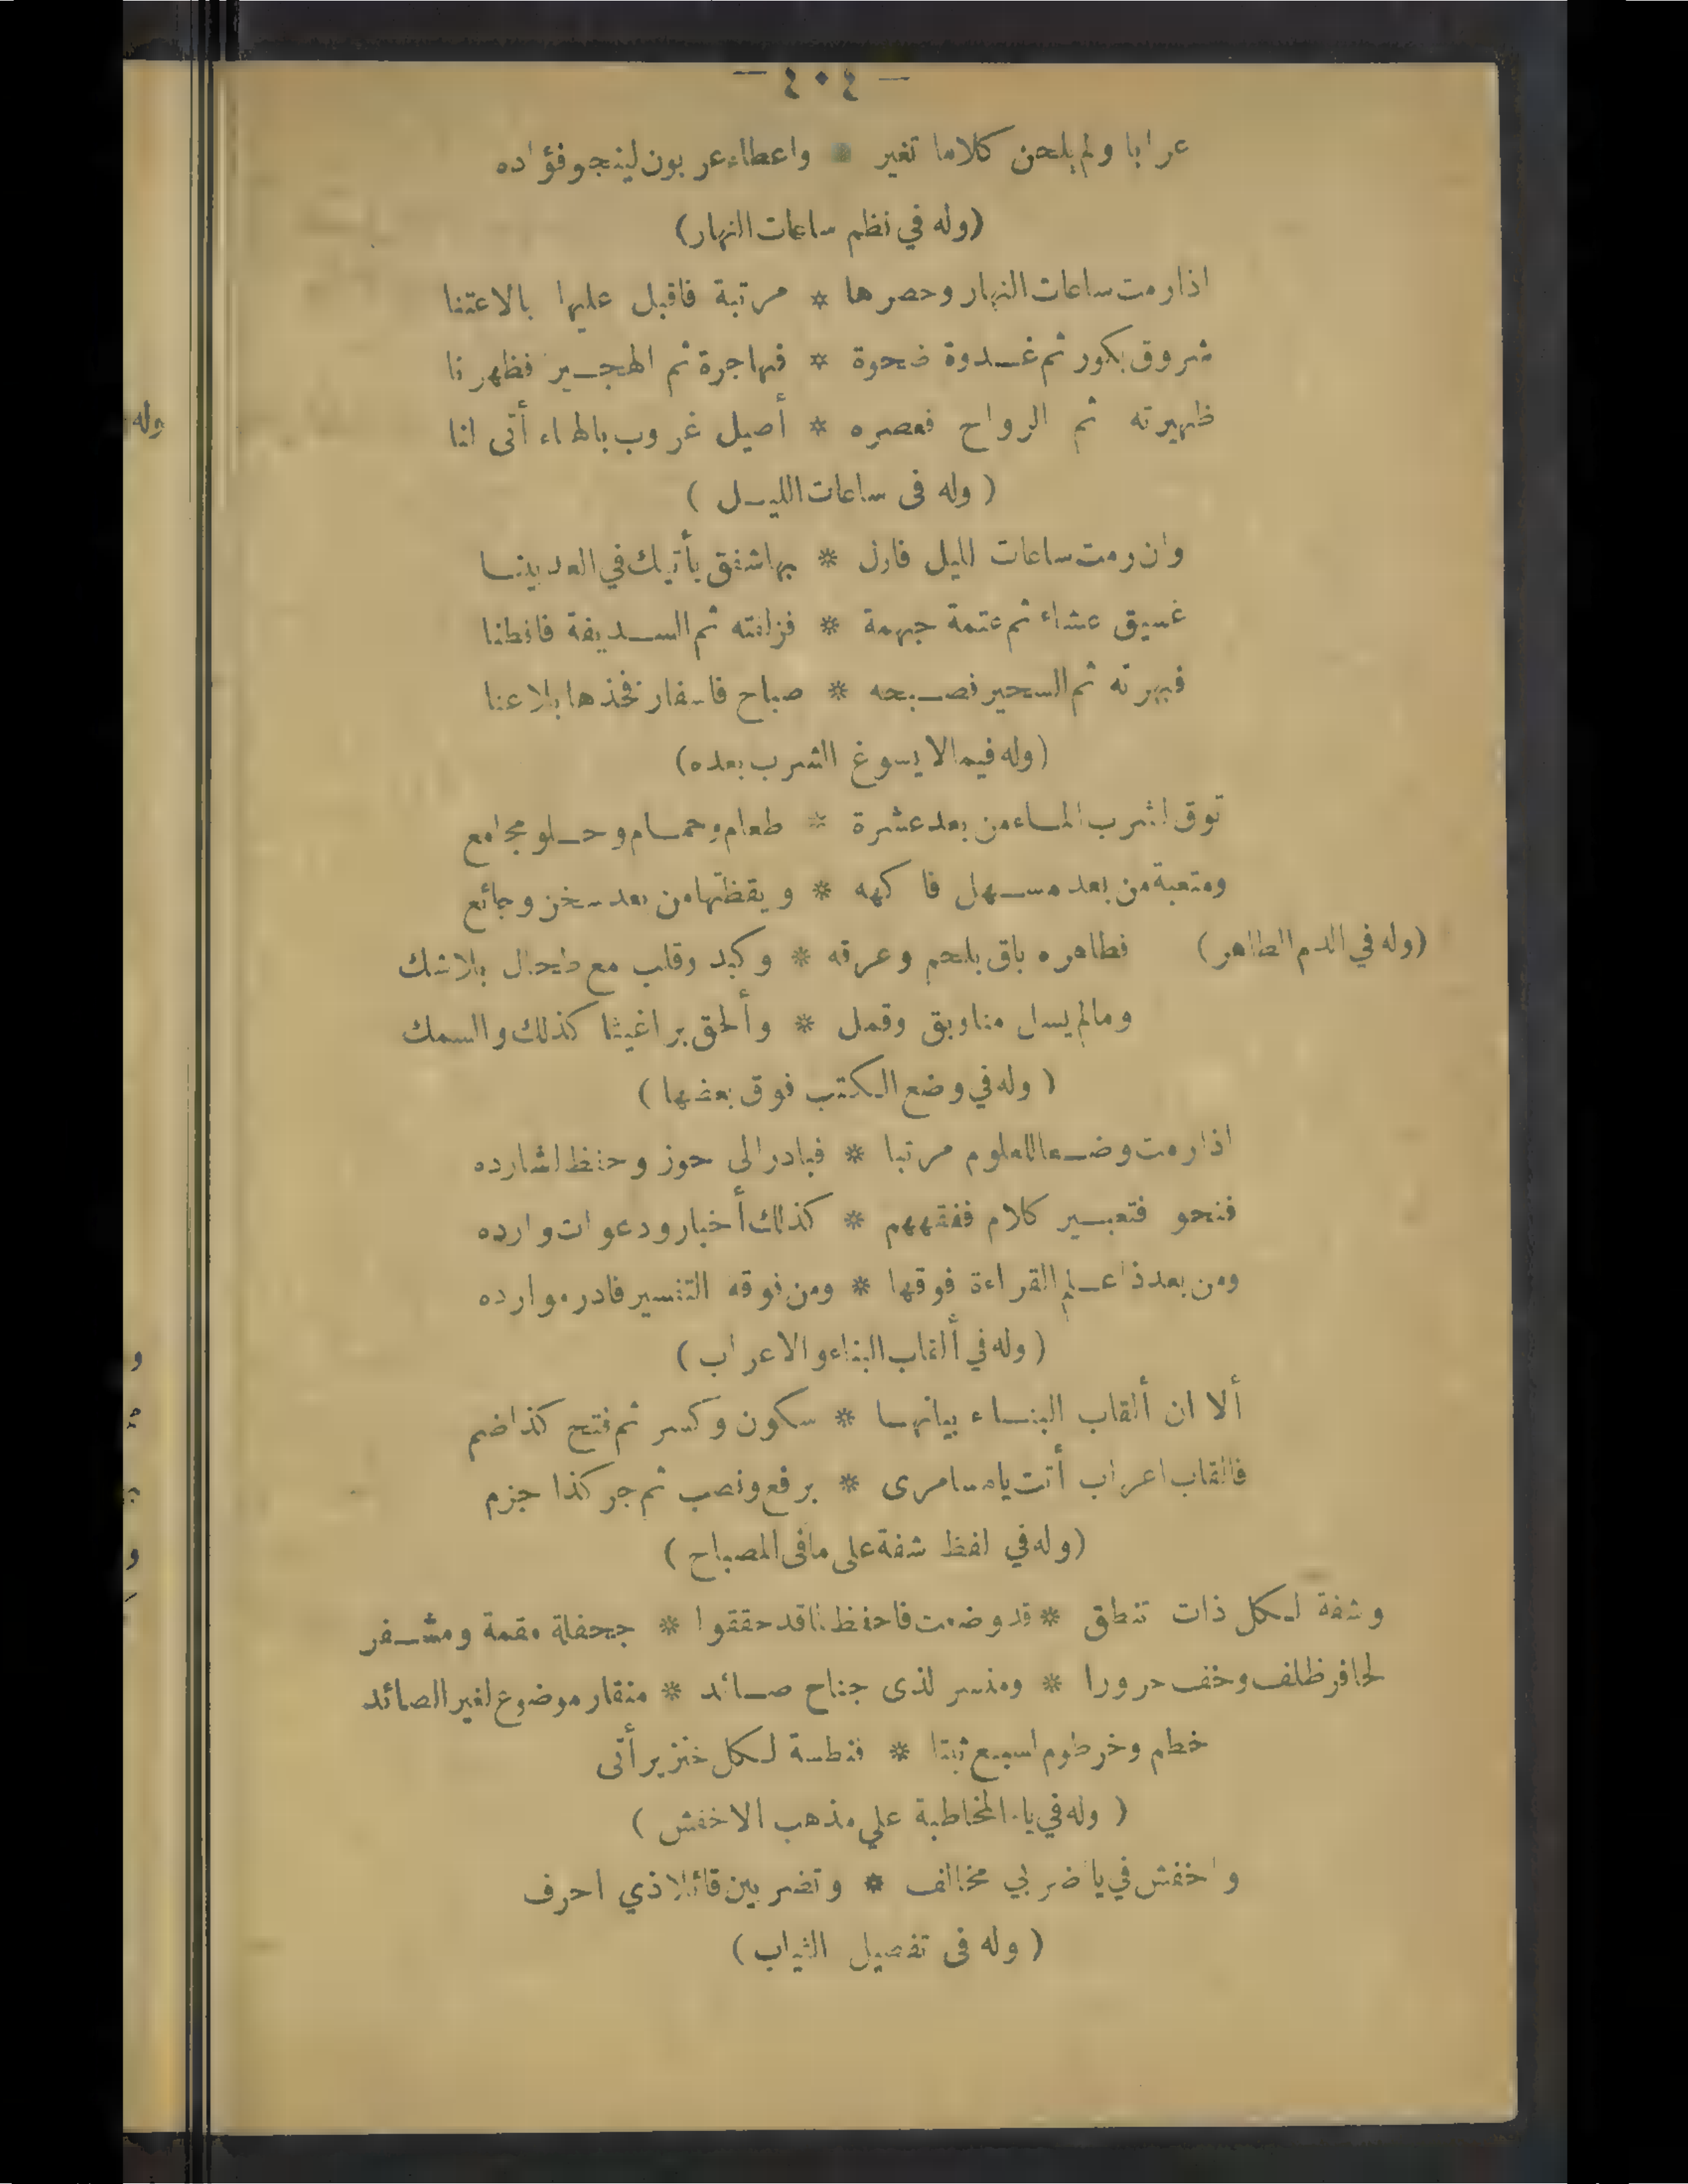 — ٤٠٤ —
عرابا ولم يلحن كلاما تغير * واعطاء عربون لينجو فؤاده
(وله في نظم ساعات النهار)
اذا رمت ساعات النهار وحصرها * مرتبة فاقبل عليها بالاعتنا
شروق بكور ثم غدوة ضحوة * فهاجرة ثم الهجير فظهرنا
ظهيرته ثم الرواح فعصره * أصيل غروب بالهاء أتى لنا
(وله فى ساعات الليل)
وان رمت ساعات لليل فازل * بها شفق يأتيك في العد بيننا
غسيق عشاء ثم عتمة جهمة * فزلفته ثم السديفة فافطنا
فبهرته ثم السحير فصبحه * صباح فاسفار فخذها بلا عنا
(وله فيما لا يسوغ الشرب بعده)
توق لشرب الماء من بعد عشرة * طعام وحمام وحلو مجامع
ومتعبة من بعد مسهل فاكهه * ويقظتها من بعد سخن وجائع
(وله في الدم الطاهر) فطاهره باق بلحم وعرقه * وكبد وقلب مع طحال بلا شك
ومالم يسل منا وبق وقمل * وألحق براغيثا كذلك والسمك
(وله في وضع الكتب فوق بعضها)
اذا رمت وضعا للعلوم مرتبا * فبادر الى حوز وحفظ لشارده
فنحو فتعبير كلام ففقههم * كذلك أخبار ودعوات وارده
ومن بعد ذا علم القراءة فوقها * ومن فوقه التفسير فادر موارده
(وله في ألقاب البناء والاعراب)
ألا ان ألقاب البناء بيانها * سكون وكسر ثم فتح كذا ضم
فالقاب اعراب أتت يا مسامرى * برفع ونصب ثم جر كذا جزم
(وله في لفظ شفة على ما فى المصباح)
وشفة لكل ذات تنطق * قد وضعت فاحفظ لما قد حققوا * جحفلة مقمة ومشفر
لحافر ظلف وخف حرورا * ومنسر لذى جناح صائد * منقار موضوع لغير الصائد
خطم وخرطوم لسبع ثبتا * فنطسة لكل خنزير أتى
(وله في ياء المخاطبة على مذهب الاخفش)
واخفش في يا ضربي مخالف * وتضربين قائلا ذي احرف
(وله فى تفصيل الثياب)
وله
و
و